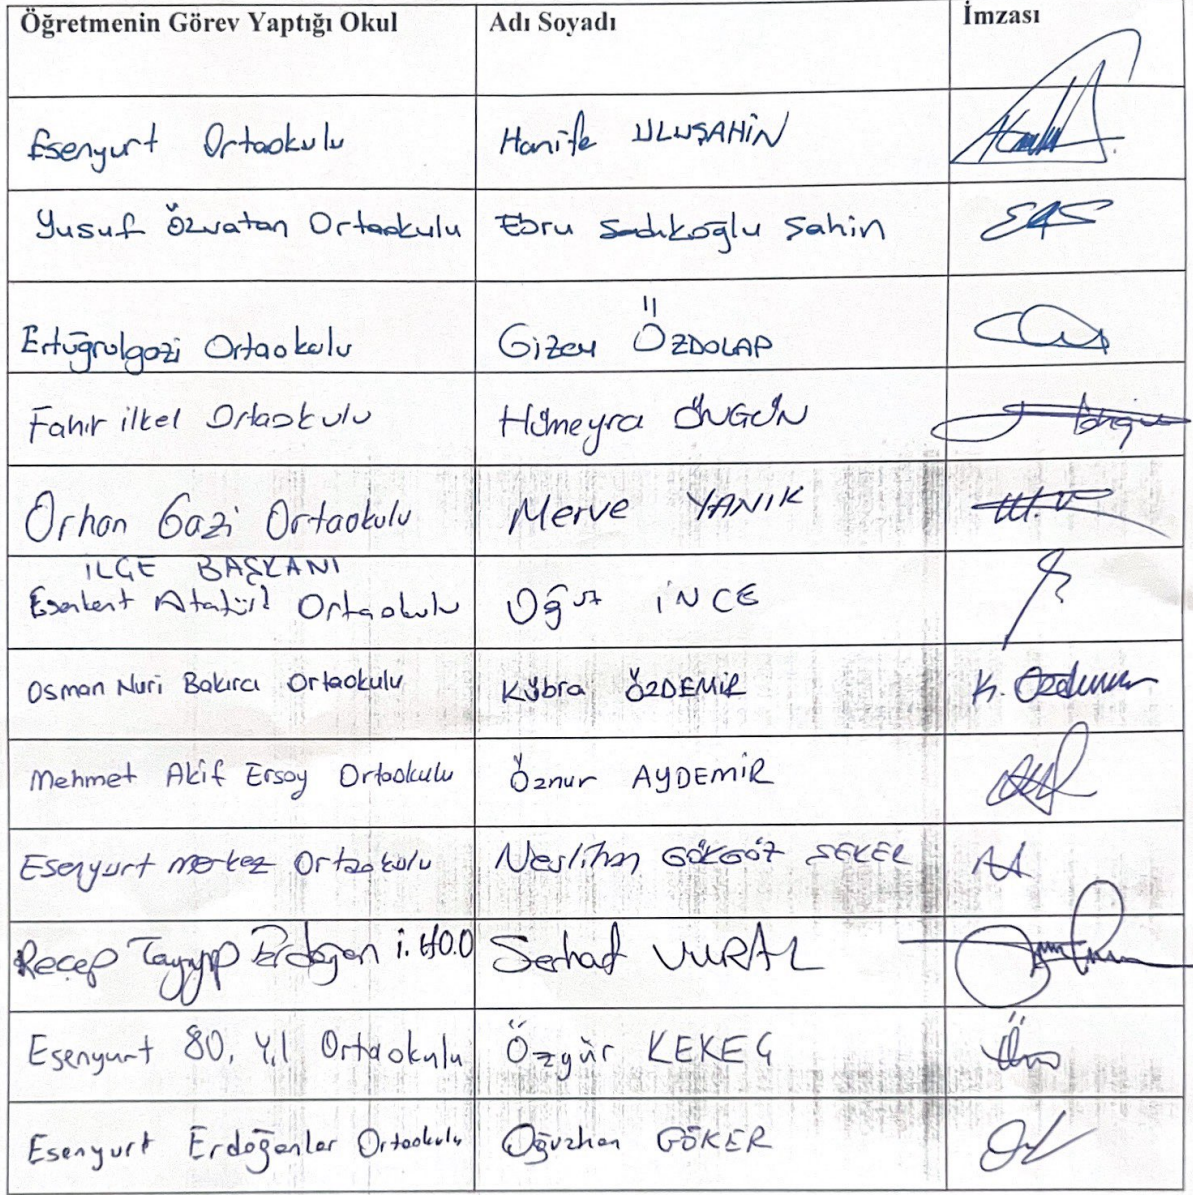 Öğretmenin Görev Yaptığı Okul Adı Soyadı İmzası
Esenyurt Ortaokulu Hanife ULUŞAHİN
Yusuf Özvatan Ortaokulu Ebru Sadıkoğlu Şahin
Ertuğrulgazi Ortaokulu Gizem ÖZDOLAP
Fahir ilkel Ortaokulu Hümeyra ÖNGÜN
Orhan Gazi Ortaokulu Merve YANIK
İLÇE BAŞKANI
Esenkent Atatürk Ortaokulu Oğuz İNCE
Osman Nuri Bakırcı Ortaokulu Kübra ÖZDEMİR K. Özdemir
Mehmet Akif Ersoy Ortaokulu Öznur AYDEMİR
Esenyurt merkez Ortaokulu Neslihan GÖKGÖZ ŞEKER
Recep Tayyip Erdoğan i.HO.O Serhat VURAL
Esenyurt 80. Yıl Ortaokulu Özgür KEKEÇ
Esenyurt Erdoğanlar Ortaokulu Oğuzhan GÖKER